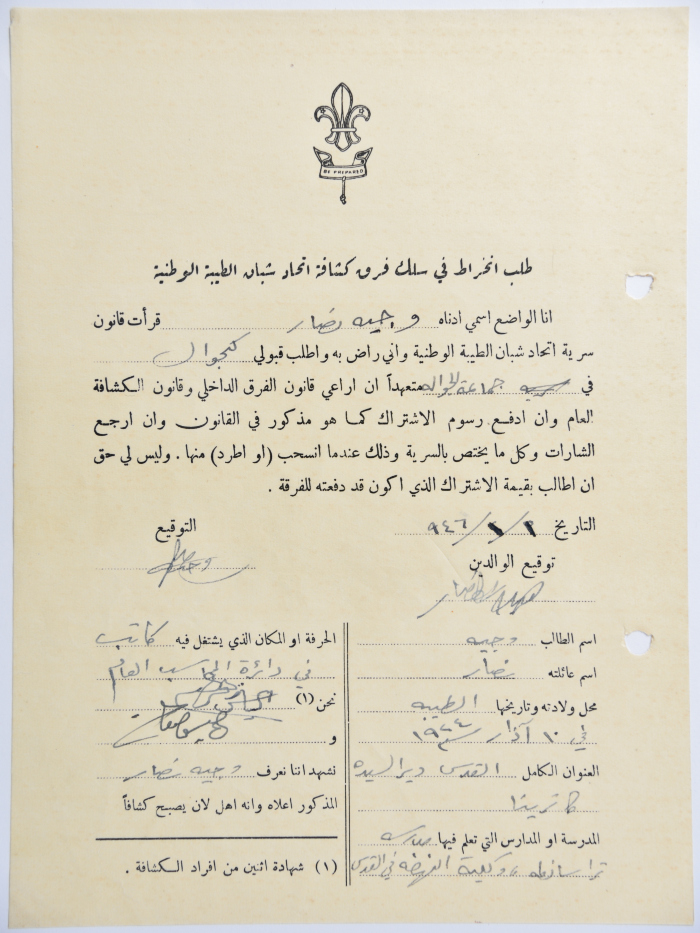 BE PREPARED
طلب انخراط في سلك فرق كشافة اتحاد شبان الطيبة الوطنية
انا الواضع اسمي ادناه وجيه نصار قرأت قانون
سرية اتحاد شبان الطيبة الوطنية واني راض به واطلب قبولي كجوال
في جماعة الجوالة متعهداً ان اراعي قانون الفرق الداخلي وقانون الكشافة
العام وان ادفع رسوم الاشتراك كما هو مذكور في القانون وان ارجع
الشارات وكل ما يختص بالسرية وذلك عندما انسحب (او اطرد) منها. وليس لي حق
ان اطالب بقيمة الاشتراك الذي اكون قد دفعته للفرقة.
التاريخ ٩٤٦/١/٢
التوقيع
توقيع الوالدين
اسم الطالب وجيه
اسم عائلته نصار
محل ولادته وتاريخها الطيبه
في ١٠ آذار سنة ١٩٢٤
العنوان الكامل القدس دير السيده
كاترينا
المدرسة او المدارس التي تعلم فيها مدرسه
تراسانطه، وكلية النهضه في القدس
الحرفة او المكان الذي يشتغل فيه كاتب
في دائرة المحاسب العام
نحن (١)
و
نشهد اننا نعرف وجيه نصار
المذكور اعلاه وانه اهل لان يصبح كشافاً
(١) شهادة اثنين من افراد الكشافة.